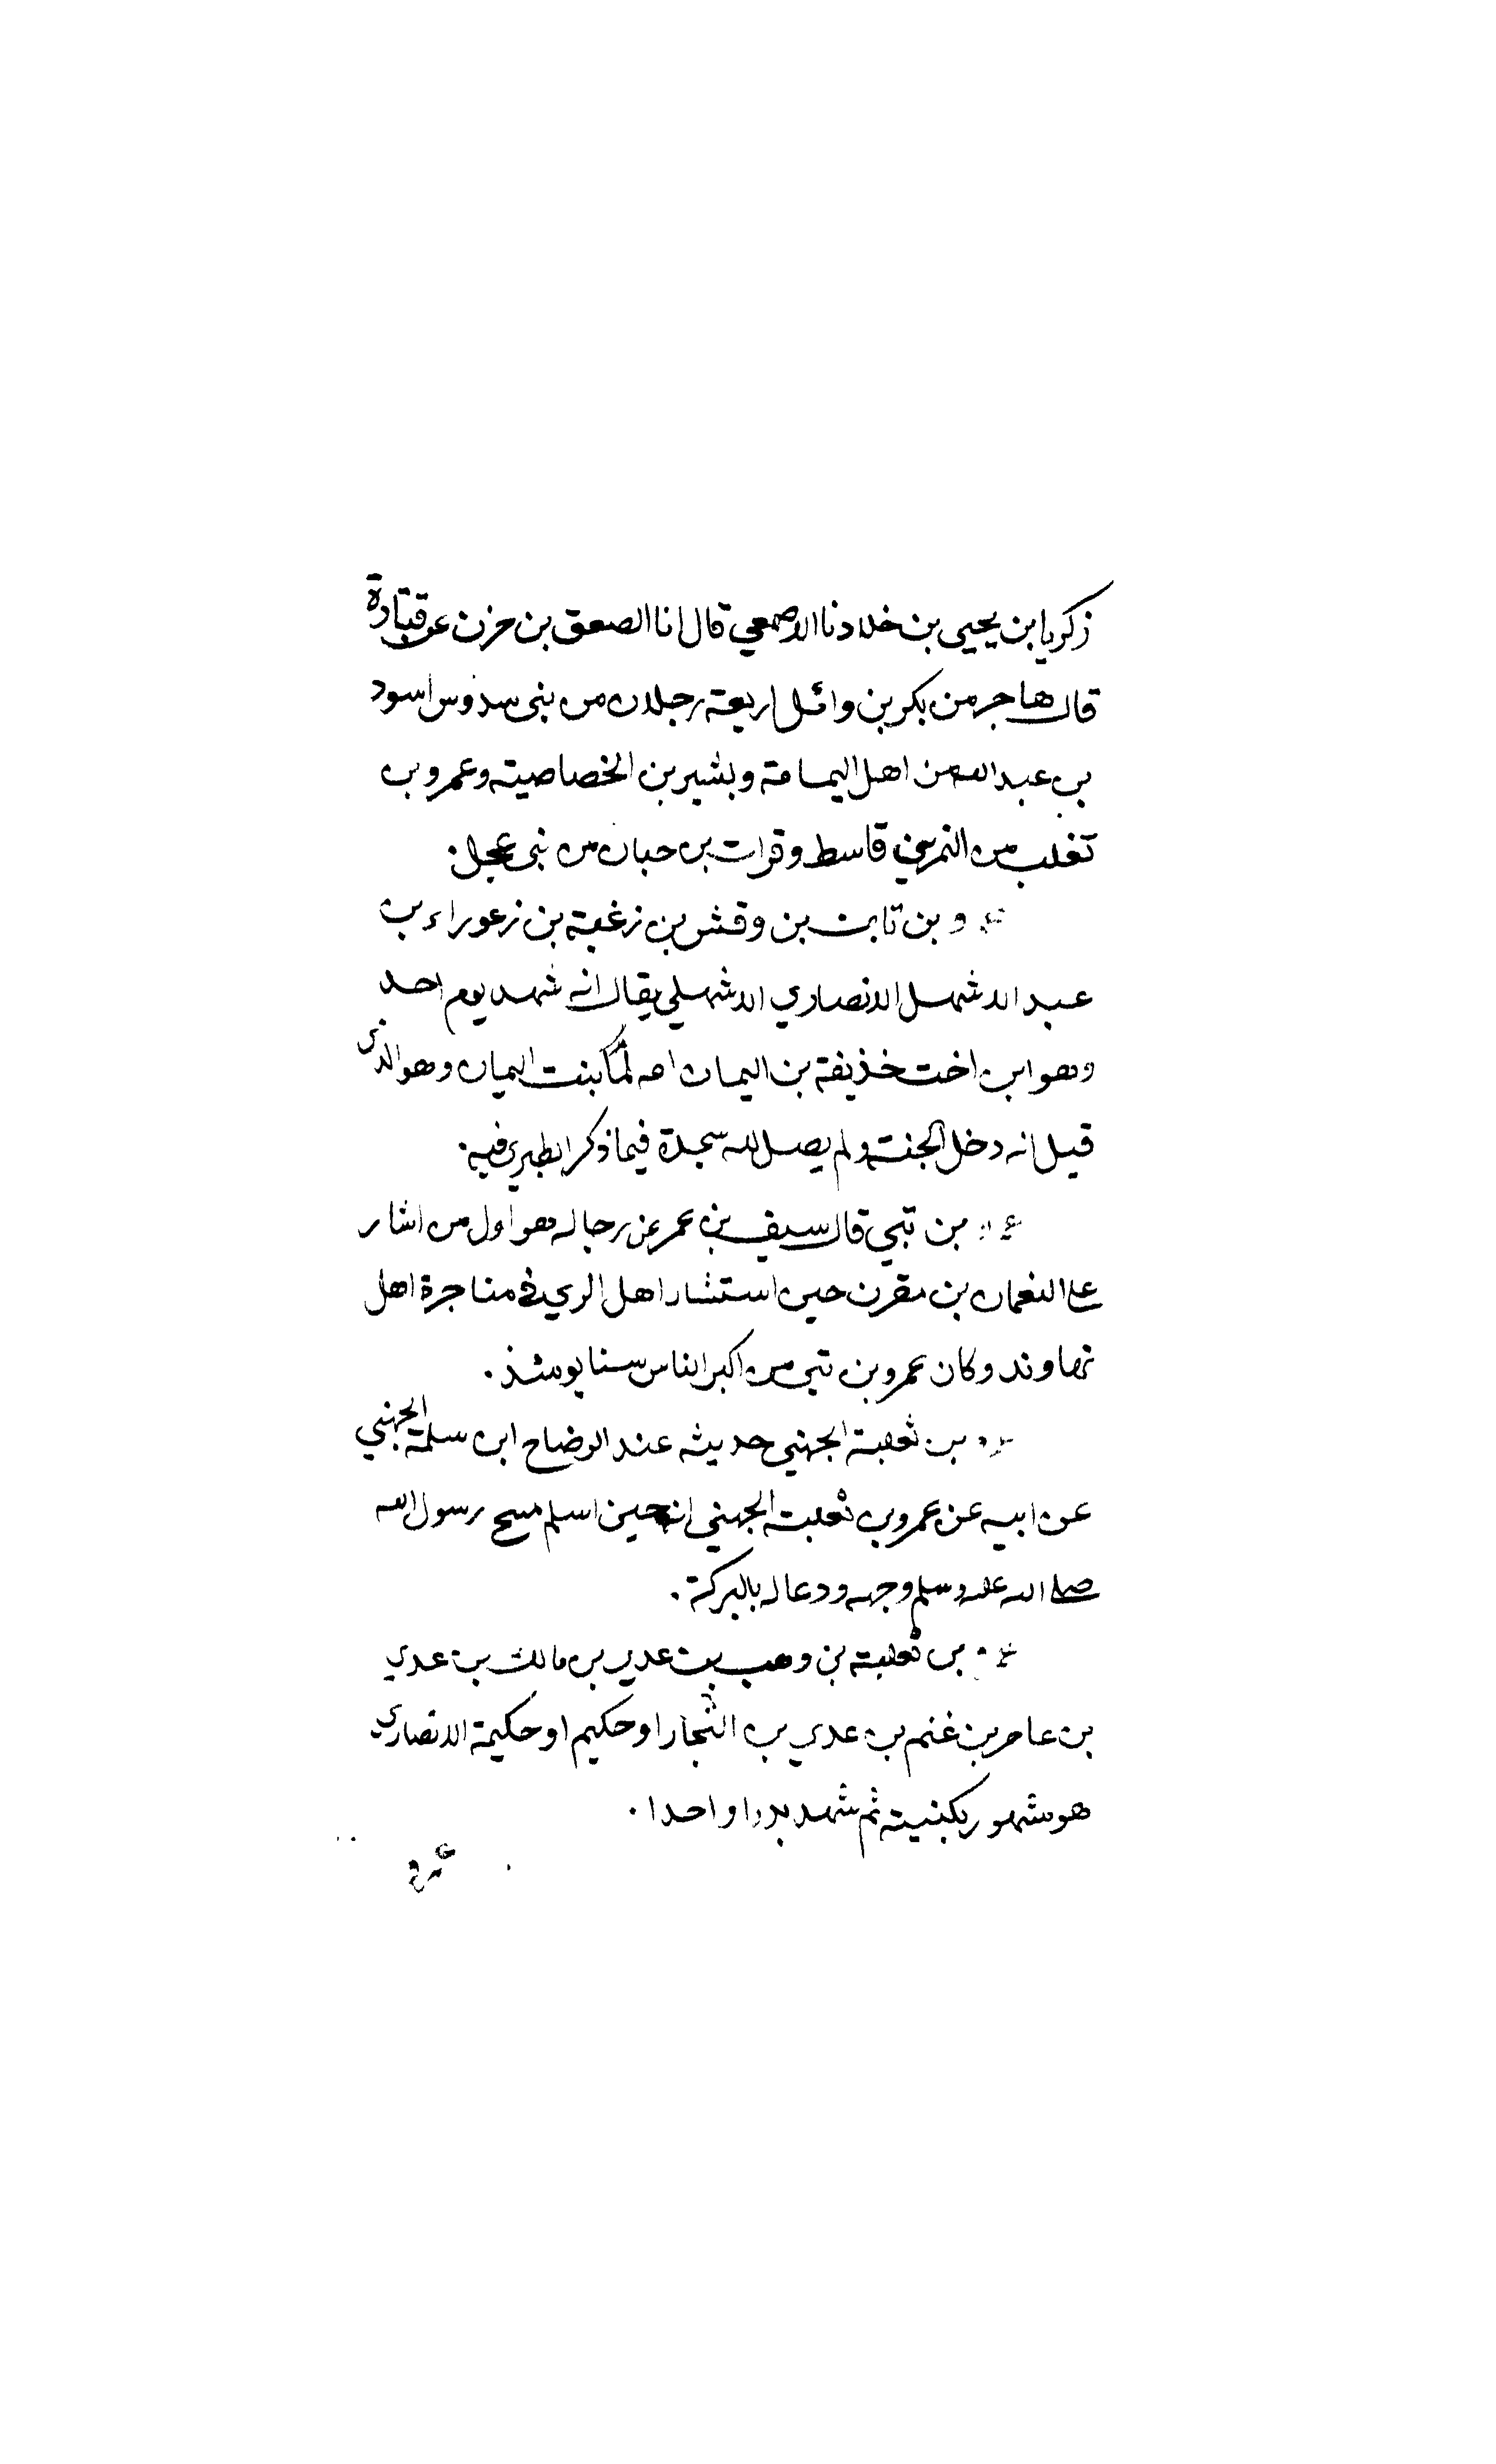 زكريا بن يحيى بن خلاد نا الاصمعي قال انا الصعق بن حزن عن قتادة
قال هاجر من بكر بن وائل اربعة رجلان من بنى سدوس اسود
بن عبد الله من اهل اليمامة وبشير بن الخصاصية وعمرو بن
تغلب من النمر بن قاسط وفرات بن حيان من بنى عجل.
بن ثابت بن وقش بن زغبة بن زعوراء بن
عبد الاشهل الانصاري الاشهلي يقال انه شهد يوم احد
وهو ابن اخت حذيفة بن اليمان امه بنت اليمان وهو الذى
قيل انه دخل الجنة ولم يصل لله سجدة فيما ذكر الطبري فيه.
بن تبي قال سيف بن عمر عن رجاله هو اول من اشار
على النعمان بن مقرن حين استشار اهل الري في مناجرة اهل
نهاوند وكان عمرو بن تبي من اكبر الناس سنا يومئذ.
بن ثعلبة الجهني حديثه عند الوضاح ابن سلمة الجهني
عن ابيه عن عمرو بن ثعلبة الجهني انه حين اسلم مسح رسول الله
صلى الله عليه وسلم وجهه ودعا له بالبركة.
بن ثعلبة بن وهب بن عدي بن مالك بن عدي
بن عامر بن غنم بن عدي بن النجار او حكيم او حكيمة الانصاري
هو مشهور بكنيته ثم شهد بدرا واحدا.